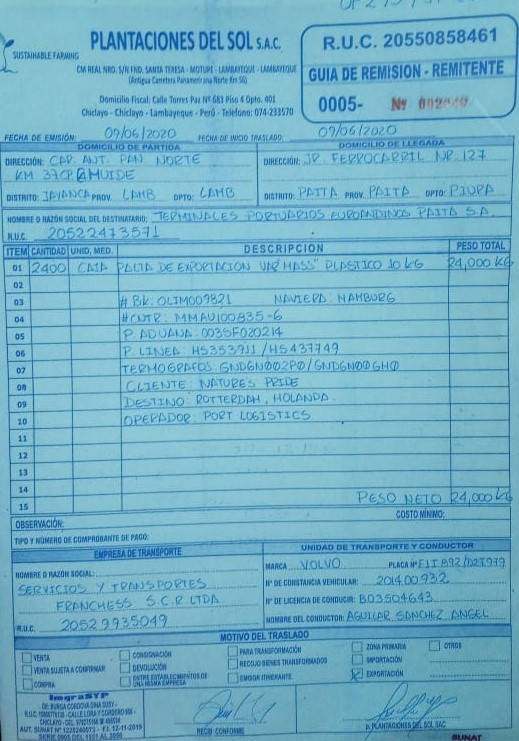 SUSTAINABLE FARMING
PLANTACIONES DEL SOL S.A.C.
CM REAL NRO. S/N FND. SANTA TERESA - MOTUPE - LAMBAYEQUE - LAMBAYEQUE
(Antigua Carretera Panamericana Norte Km 56)
Domicilio Fiscal: Calle Torres Paz Nº 683 Piso 4 Dpto. 401
Chiclayo - Chiclayo - Lambayeque - Perú - Telefono: 074-233570
R.U.C. 20550858461
GUIA DE REMISION - REMITENTE
0005- Nº
FECHA DE EMISIÓN: 09/06/2020 FECHA DE INICIO TRASLADO: 09/06/2020
DOMICILIO DE PARTIDA DOMICILIO DE LLEGADA
DIRECCIÓN: CAR. ANT. PAN. NORTE DIRECCIÓN: JR. FERROCARRIL NR. 127
DISTRITO: JAYANCA PROV. LAMB DPTO: LAMB DISTRITO: PAITA PROV. PAITA DPTO: PIURA
NOMBRE O RAZÓN SOCIAL DEL DESTINATARIO: TERMINALES PORTUARIOS EUROANDINOS PAITA S.A.
R.U.C. 20522473571
ITEM CANTIDAD UNID. MED. DESCRIPCION PESO TOTAL
01 2400 CAJA PALTA DE EXPORTACION VAR "HASS" PLASTICO 10 KG 24,000 KG
02
03 # BK: OLIM009821 NAVIERA: HAMBURG
04 #CNTR: MMAU100835-6
05 P. ADUANA: 0035F020214
06 P. LINEA: H5353911 / H5437749
07 TERMOGRAFOS:
08 CLIENTE: NATURES PRIDE
09 DESTINO: ROTTERDAH, HOLANDA.
10 OPERADOR: PORT LOGISTICS
11
12
13
14
15 PESO NETO 24,000 KG
OBSERVACIÓN: COSTO MÍNIMO:
TIPO Y NÚMERO DE COMPROBANTE DE PAGO:
EMPRESA DE TRANSPORTE UNIDAD DE TRANSPORTE Y CONDUCTOR
MARCA VOLVO PLACA Nº
NOMBRE O RAZÓN SOCIAL: Nº DE CONSTANCIA VEHICULAR: 201400932
SERVICIOS Y TRANSPORTES Nº DE LICENCIA DE CONDUCIR: B03504643
FRANCHESS S.C.R LTDA NOMBRE DEL CONDUCTOR: AGUILAR SANCHEZ ANGEL
R.U.C. 20529935049
MOTIVO DEL TRASLADO
VENTA CONSIGNACIÓN PARA TRANSFORMACIÓN ZONA PRIMARIA OTROS
VENTA SUJETA A CONFIRMAR DEVOLUCIÓN RECOJO BIENES TRANSFORMADOS IMPORTACIÓN
COMPRA ENTRE ESTABLECIMIENTOS DE UNA MISMA EMPRESA EMISOR ITINERANTE EXPORTACIÓN
ImgraSYP
DE: BURGA CORDOVA DINA SUSY
RECIBI CONFORME P. PLANTACIONES DEL SOL SAC
SUNAT